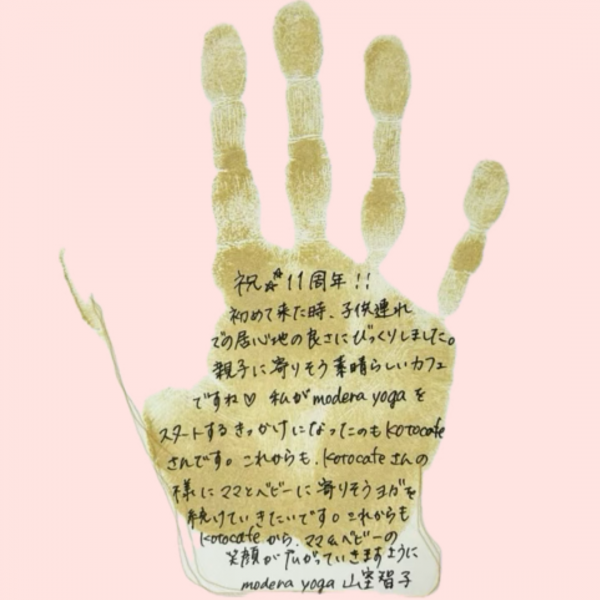 祝☆11周年!!
初めて来た時、子供連れ
での居心地の良さにびっくりしました。
親子に寄りそう素晴らしいカフェ
ですね♡ 私がmodera yogaを
スタートするきっかけになったのもkotocafe
さんです。これからも、kotocafeさんの
様にママとベビーに寄りそうヨガを
続けていきたいです。これからも
kotocafeから、ママ&ベビーの
笑顔が広がっていきますように
modera yoga 山室智子